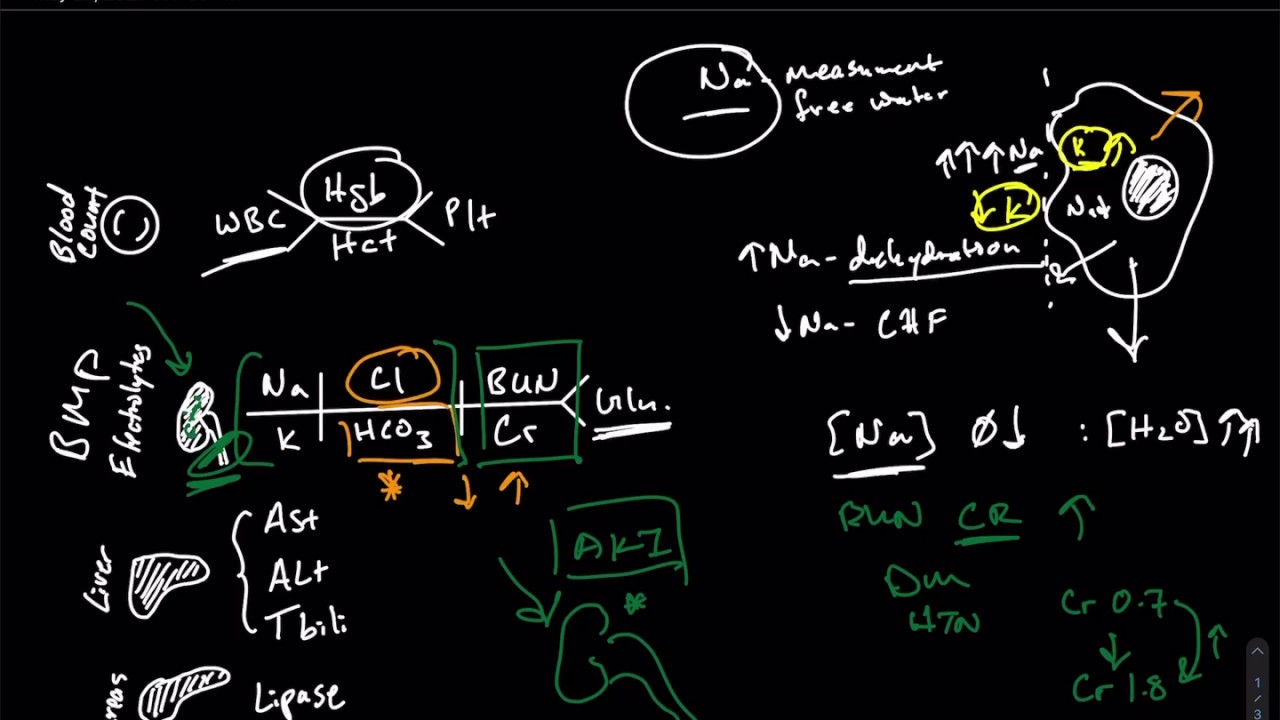 Blood Count
WBC
Hgb
Hct
Plt
BMP
Electrolytes
Na
Cl
BUN
K
HCO3
Cr
Glu.
*
Liver
Ast
ALt
Tbili
reas
Lipase
AKI
*
Na - measument
free water
↑↑↑ Na
K ↑
↓ K
Na+
↑Na - dehydration
↓Na - CHF
[Na] Ø↓ : [H2O] ↑↑
BUN CR ↑
Dm
HTN
Cr 0.7
↓
↑
Cr 1.8
1
/
3